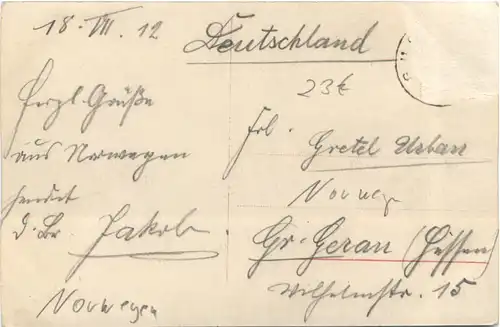 18. VII. 12
Deutschland
23€
Herzl. Grüße
aus Norwegen
sendet
d. Br. Jakob
Norwegen
Frl.
Gretel Urban
Norwege
Gr-Gerau (Hessen)
Wilhelmstr. 15